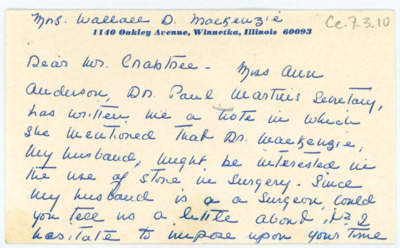 Mrs. Wallace D. MacKenzie
1140 Oakley Avenue, Winnetka, Illinois 60093
Cc.7.3.10
Dear Mr. Crabtree - Miss Ann
Anderson, Dr. Paul Martin's Secretary,
has written me a note in which
she mentioned that Dr. MacKenzie,
my husband, might be interested in
the use of stone in surgery. Since
my husband is a a surgeon, could
you tell us a little about it? I
hesitate to impose upon your time